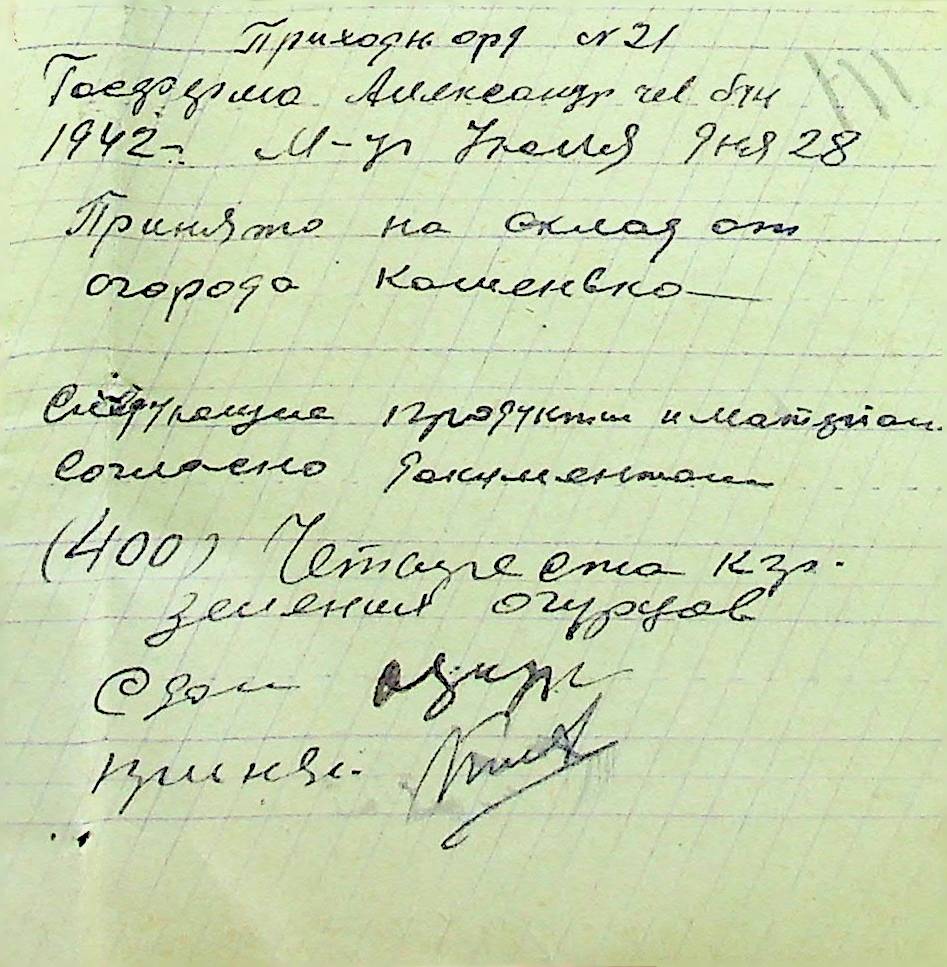 Приходн. орд N 21
Госферма Александр
1942 г. М-ц Июля дня 28
Принято на склад от
огорода
Следующие продукты и материал.
Согласно документам
(400) Четыреста кгр.
зелених огурцов
Сдал
принял.